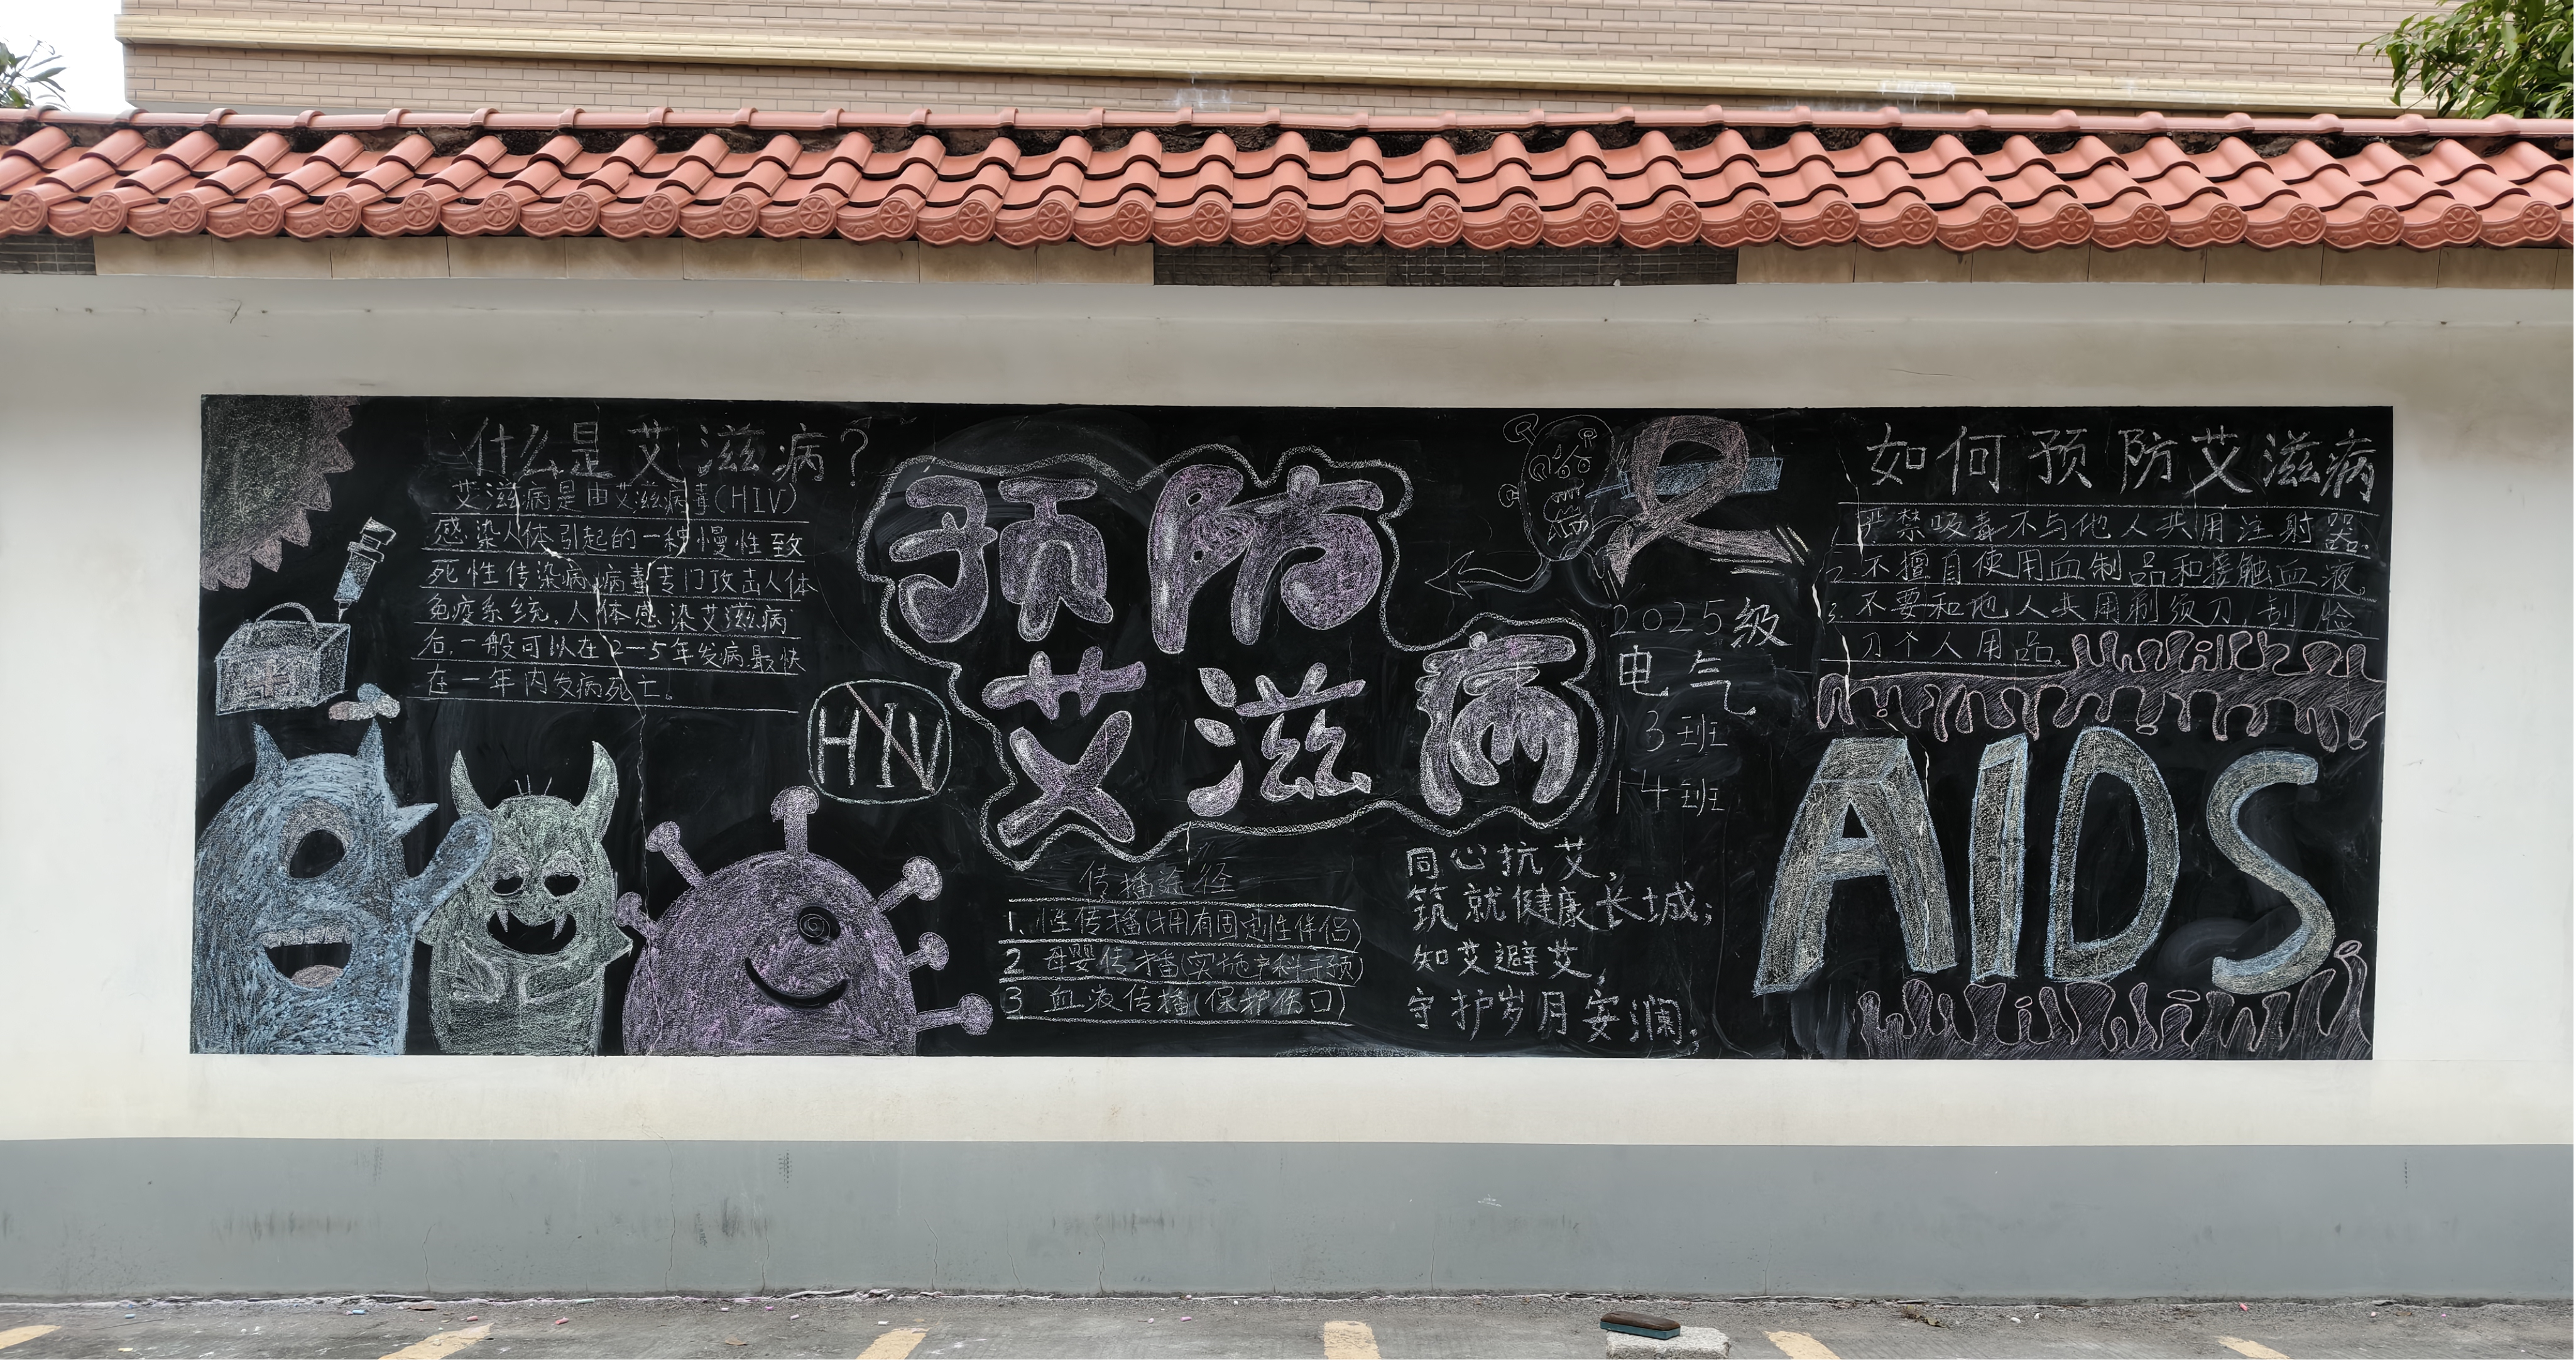 什么是艾滋病?
艾滋病是由艾滋病毒(HIV)
感染人体引起的一种慢性致
死性传染病,病毒专门攻击人体
免疫系统。人体感染艾滋病
后,一般可以在2-5年发病最快
在一年内发病死亡。
HIV
预防
艾滋病
传播途径
1、性传播(拥有固定性伴侣)
2 母婴传播(实施产科干预)
3 血液传播(保护伤口)
2025级
电气
13班
14班
同心抗艾,
筑就健康长城;
知艾避艾,
守护岁月安澜;
如何预防艾滋病
严禁吸毒不与他人共用注射器。
2. 不擅自使用血制品和接触血液。
3. 不要和他人共用剃须刀,刮脸
刀个人用品。
AIDS